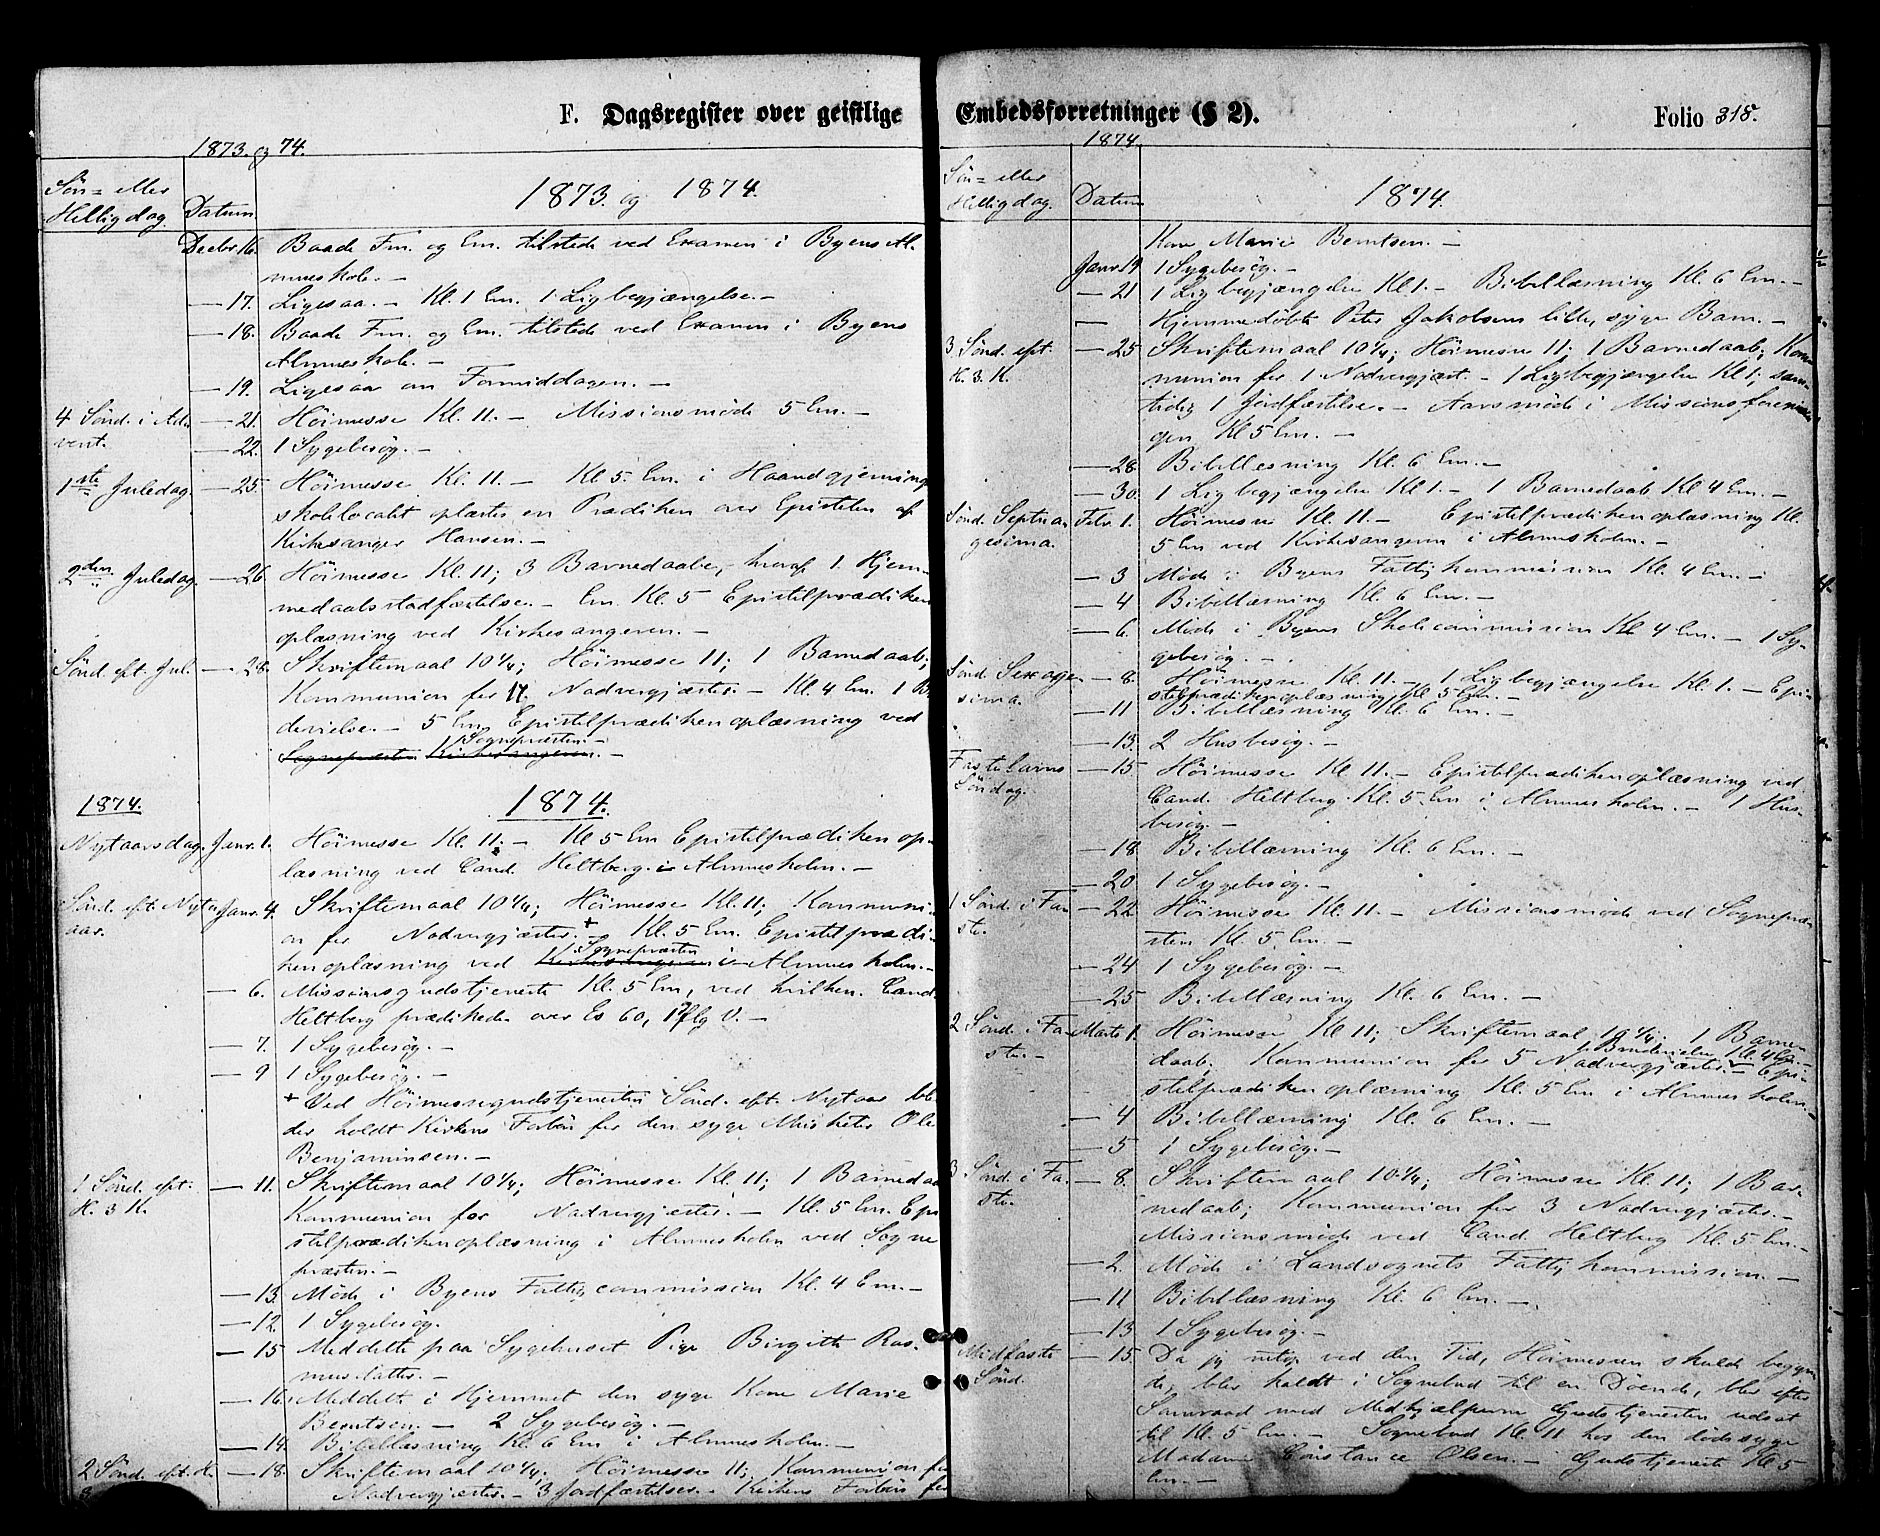 F. Dagsregister over geistlige
1873. og 74.
Søn= eller
Helligdag.
Datum.
1873. og 1874.
Decbr. 16. Baade Fm. og Em. tilstede ved Examen i Byens Al-
mueskole. —
— 17. Ligesaa. — Kl. 1 Em. 1 Ligbegjængelse. —
— 18. Baade Fm. og Em. tilstede ved Examen i Byens
Almueskole. —
— 19. Ligesaa om Formiddagen. —
4 Sönd. i Ad- — 21. Höimesse Kl. 11. — Missionsmöde 5 Em. —
vent. — 22. 1 Sygebesög. —
1ste Juledag. — 25. Höimesse Kl. 11. — Kl. 5 Em. i Haandgjernings
skolelocalet oplæstes en Prædiken over Epistelen af
Kirkesanger Hansen. —
2den Juledag. — 26. Höimesse Kl. 11; 3 Barnedaabe, hvoraf 1 Hjem-
medaabsstadfæstelse. — Em. Kl. 5 Epistelprædiken
oplæsning ved Kirkesangeren. —
Sönd. eft. Jul. — 28. Skriftemaal 10¼; Höimesse 11; 1 Barnedaab;
Kommunion for 17. Nadvergjæster. — Kl. 4 Em. 1 Br
devielse. — 5 Em. Epistelprædikenoplæsning ved
Sognepræsten. —
Sognepræsten Kirkesangeren. —
1874. 1874.
Nytaarsdag. Janr. 1. Höimesse Kl. 11. — Kl. 5 Em Epistelprædikenop-
læsning ved Cand. Heltberg i Almueskolen. —
Sönd. eft. Nyt- Janr. 4. Skriftemaal 10¼; Höimesse Kl. 11; Kommuni-
aar. on for Nadvergjæster. + Kl. 5 Em. Epistelprædi-
Sognepræsten
kenoplæsning ved Kirkesangeren i Almueskolen. —
— 6. Missionsgudstjeneste Kl. 5 Em, ved hvilken Cand.
Heltberg prædikede over Es 60, 1 flg V. —
— 7. 1 Sygebesög. —
— 9 1 Sygebesög. —
+ Ved Höimessegudstjenesten Sönd. eft. Nytaar ble
der holdt Kirkens Forbön for den syge Ole
Benjaminsen. —
1 Sönd. eft. — 11. Skriftemaal 10¼; Höimesse Kl. 11; 1 Barnedaa
H. 3 K. Kommunion for Nadvergjæster. — Kl. 5 Em. Epi
stelprædikenoplæsning i Almueskolen ved Sogne
præsten. —
— 13. Möde i Byens Fattigcommission Kl. 4 Em. —
— 12. 1 Sygebesög.
— 15 Meddelte paa Sygehuset Pige Birgitte Ras-
musdatter. —
— 16. Meddelte i Hjemmet den syge Kone Marie
Berntsen. — 2 Sygebesög. —
— 14. Bibellæsning Kl. 6 Em i Almueskolen. —
2 Sönd. eft. H. — 18. Skriftemaal 10¼; Höimesse 11; Kommunion for
Nadvergjæster. — 3 Jordfæstelser. — Kirkens Forbön for
Embedsforretninger (§ 2).
Folio 318.
1874.
Søn= eller
Helligdag.
Datum
1874.
Kone Marie Berntsen. —
Janr. 19 1 Sygebesög. —
— 21 1 Ligbegjængelse Kl 1. — Bibellæsning Kl. 6 Em. —
— Hjemmedöbte Peter Jakobsens lille, syge Barn. —
3 Sönd. eft. — 25 Skriftemaal 10¼; Höimesse 11; 1 Barnedaab; Kom-
H. 3. K. munion for 1 Nadvergjæst. — 1 Ligbegjængelse Kl 1; sam-
tidig 1 Jordfæstelse. — Aarsmöde i Missionsforenin-
gen Kl 5 Em. —
— 28. Bibellæsning Kl. 6 Em. —
— 30. 1 Ligbegjængelse Kl 1. — 1 Barnedaab Kl 4 Em. —
Sönd. Septua- Febr. 1. Höimesse Kl. 11. — Epistelprædikenoplæsning Kl.
gesima. 5 Em ved Kirkesangeren i Almueskolen. —
— 3 Möde i Byens Fattigkommission Kl. 4 Em. —
— 4 Bibellæsning Kl. 6 Em. —
— 6. Möde i Byens Skolecommission Kl 4 Em. — 1 Sy-
gebesög. —
Sönd. Sexage- — 8. Höimesse Kl. 11. — 1 Ligbegjængelse Kl 1. — Epi-
stelprædikenoplæsning Kl 5 Em. —
sima. — 11 Bibellæsning Kl. 6 Em. —
— 13. 2 Husbesög. —
Fastelavns — 15 Höimesse Kl 11. — Epistelprædikenoplæsning ved
Söndag. Cand. Heltberg Kl. 5 Em i Almueskolen. — 1 Hus-
besög. —
— 18 Bibellæsning Kl. 6 Em. —
— 20 1 Sygebesög. —
1 Sönd. i Fa- — 22. Höimesse Kl. 11. — Missionsmöde ved Sognepræ-
ste. sten Kl. 5 Em. —
— 24 1 Sygebesög. —
— 25 Bibellæsning Kl. 6 Em. —
2 Sönd. i Fa- Marts 1. Höimesse Kl 11; Skriftemaal 10¼; 1 Barne-
1 Brudevielse Kl. 4 Em
ste. — daab; Kommunion for 5 Nadvergjæster. — Epi-
stelprædikenoplæsning Kl. 5 Em i Almueskolen. —
— 4 Bibellæsning Kl. 6 Em. —
— 5 1 Sygebesög. —
3 Sönd. i Fa- — 8. Skriftemaal 10¼; Höimesse Kl. 11; 1 Bar-
ste. nedaab; Kommunion for 3 Nadvergjæster. —
Missionsmöde ved Cand. Heltberg Kl. 5 Em. —
— 2. Möde i Landsognets Fattigkommission. —
— 11 Bibellæsning Kl. 6 Em. —
— 13 1 Sygebesög. —
Midfaste — 15. Da jeg netop ved den Tid, Höimessen skulde begyn-
Sönd. de, blev kaldt i Sognebud til en Döende, blev efter
Samraad med Medhjælperne Gudstjenesten udsat
til Kl. 5 Em. — Sognebud Kl. 11 hos den dödssyge
Madame Constance Olsen. — Gudstjeneste Kl 5
Em. —